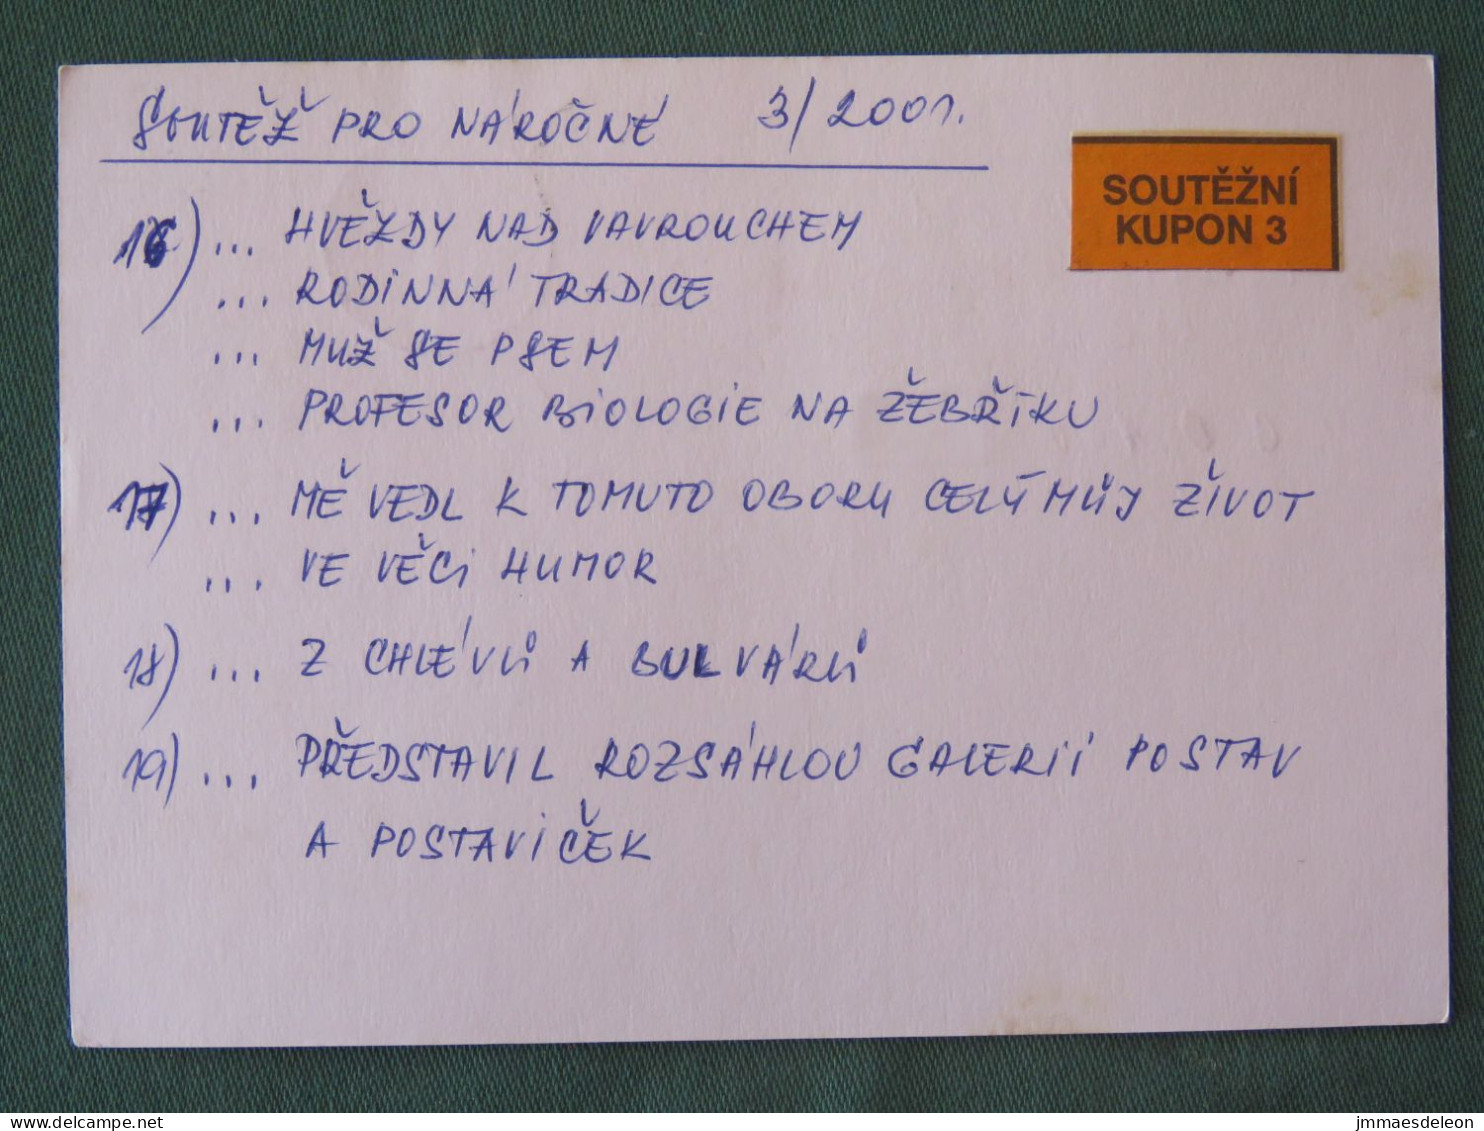 SOUTĚŽ PRO NÁROČNÉ 3/2001.
SOUTĚŽNÍ
KUPON 3
16) ... HVĚZDY NAD VAVROUCHEM
... RODINNÁ TRADICE
... MUŽ SE PSEM
... PROFESOR BIOLOGIE NA ŽEBŘÍKU
17) ... MĚ VEDL K TOMUTO OBORU CELÝ MŮJ ŽIVOT
... VE VĚCI HUMOR
18) ... Z CHLÉVŮ A BULVÁRŮ
19) ... PŘEDSTAVIL ROZSÁHLOU GALERII POSTAV
A POSTAVIČEK
www.delcampe.net
jmmaesdeleon